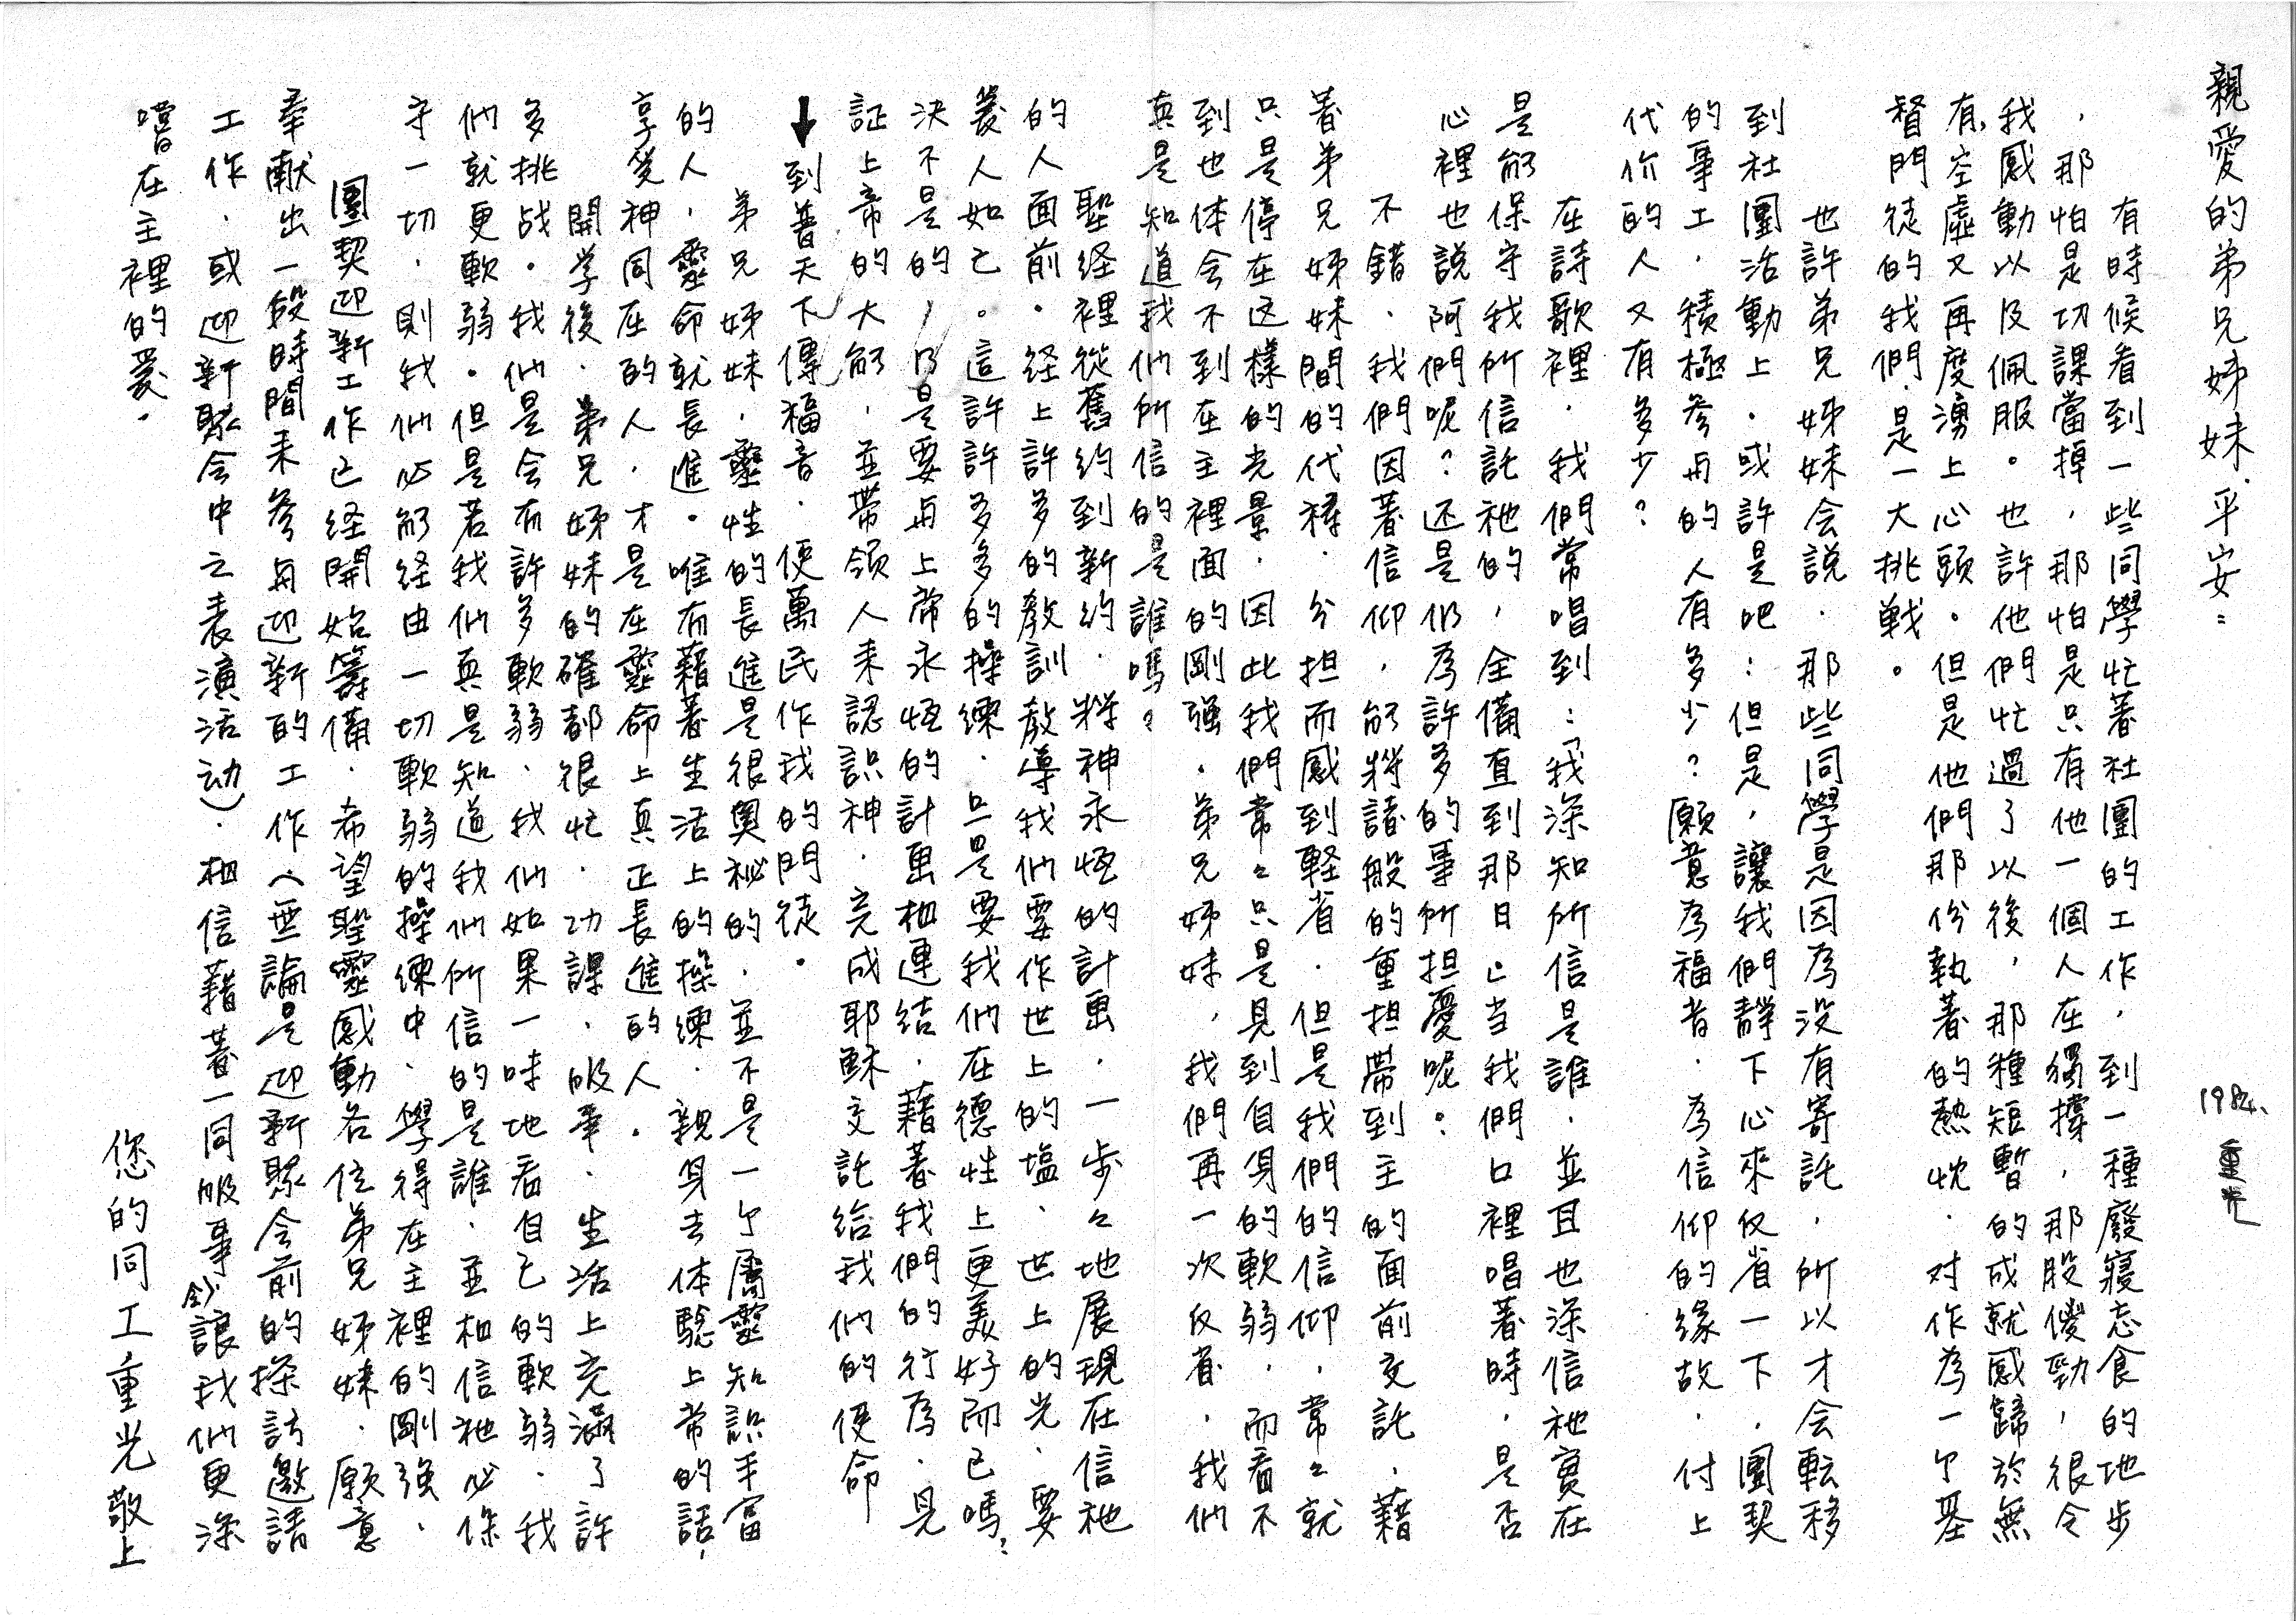 1984. 重光
親愛的弟兄姊妹.平安:
有時候看到一些同學忙著社團的工作,到一種廢寢忘食的地步
,那怕是切課當掉,那怕是只有他一個人在獨撐,那股傻勁,很令
我感動以及佩服。也許他們忙過了以後,那種短暫的成就感歸於無
有,空虛又再度湧上心頭。但是他們那份執著的熱忱.对作為一个基
督門徒的我們.是一大挑戰。
也許弟兄姊妹会說.那些同學是因為没有寄託.所以才会転移
到社團活動上.或許是吧:但是,讓我們靜下心來反省一下.團契
的事工.積極参与的人有多少?願意為福音.為信仰的緣故.付上
代价的人又有多少?
在詩歌裡.我們常唱到:「我深知所信是誰.並且也深信祂實在
是能保守我所信託祂的,全備直到那日」当我們口裡唱著時.是否
心裡也說阿們呢?还是仍為許多的事所担憂呢:
不錯.我們因著信仰.能將諸般的重担帶到主的面前交託.藉
著弟兄姊妹間的代禱.分担而感到輕省.但是我們的信仰.常々就
只是停在这樣的光景.因此我們常々只是見到自身的軟弱.而看不
到也体会不到在主裡面的剛强.弟兄姊妹,我們再一次反省.我們
真是知道我們所信的是誰嗎?
聖経裡從舊約到新約.將神永恆的計畫.一步々地展現在信祂
的人面前.経上許多的教訓教導我們要作世上的塩.世上的光.要
愛人如己。這許許多多的操練.只是要我們在德性上更美好而已嗎?
決不是的!乃是要与上帝永恆的計畫相連結.藉著我們的行為.見
証上帝的大能.並帶領人来認識神.完成耶穌交託給我們的使命
↓到普天下傳福音.使萬民作我的門徒。
弟兄姊妹.靈性的長進是很奧秘的.並不是一个屬靈知識丰富
的人.靈命就長進。唯有藉著生活上的操練.親身去体驗上帝的話,
享受神同在的人.才是在靈命上真正長進的人.
開学後.弟兄姊妹的確都很忙.功課.服事.生活上充滿了許
多挑战.我們是会有許多軟弱.我們如果一味地看自己的軟弱.我
們就更軟弱.但是若我們真是知道我們所信的是誰.並相信祂必保
守一切.則我們必能経由一切軟弱的操練中.學得在主裡的剛强.
團契迎新工作已経開始籌備.希望聖靈感動各位弟兄姊妹.願意
奉献出一段時間来参与迎新的工作(無論是迎新聚会前的探訪邀請
工作.或迎新聚会中之表演活动).相信藉著一同服事会讓我們更深
嚐在主裡的愛.
您的同工,重光敬上